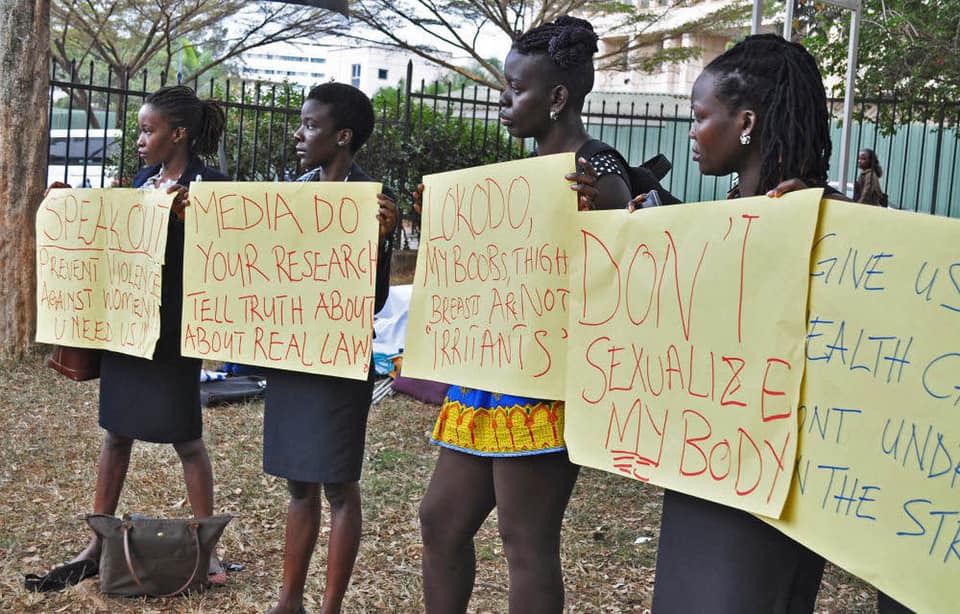 SPEAK OUT
PREVENT VIOLENCE
AGAINST WOMEN
U NEED US!
MEDIA DO
YOUR RESEARCH
TELL TRUTH ABOUT
ABOUT REAL LAW
LOKODO,
MY BOOBS, THIGH
BREAST ARE NOT
"IRRITANTS"
DON'T
SEXUALIZE
MY BODY
GIVE US
THE STR